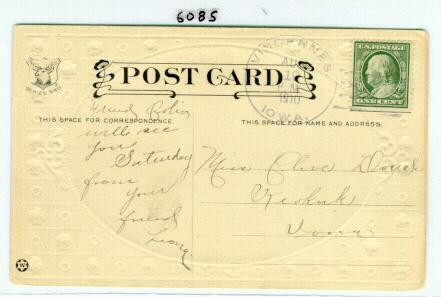 6085
VINCENNES,
AU
10
M
1910
IOWA.
U.S. POSTAGE
ONE CENT
SERIES
POST CARD
THIS SPACE FOR CORRESPONDENCE.
THIS SPACE FOR NAME AND ADDRESS.
Friend
will see
you
Saturday
from
your
friend
Leona
Miss Olive
Keokuk
Iowa